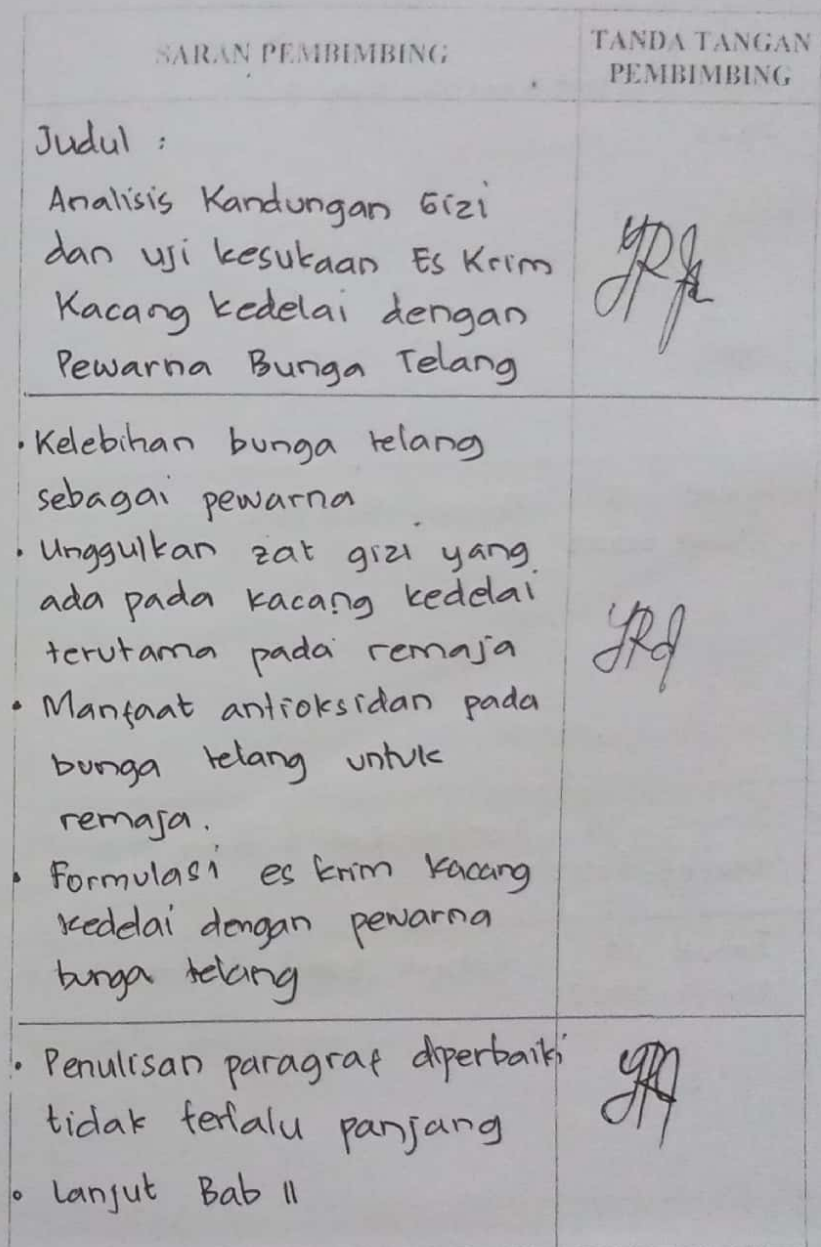 SARAN PEMBIMBING
TANDA TANGAN
PEMBIMBING
Judul :
Analisis Kandungan Gizi
dan uji kesukaan Es Krim
Kacang kedelai dengan
Pewarna Bunga Telang
• Kelebihan bunga telang
sebagai pewarna
• Unggulkan zat gizi yang
ada pada kacang kedelai
terutama pada remaja
• Manfaat antioksidan pada
bunga telang untuk
remaja.
• Formulasi es krim kacang
kedelai dengan pewarna
bunga telang
• Penulisan paragraf diperbaiki
tidak terlalu panjang
• Lanjut Bab II